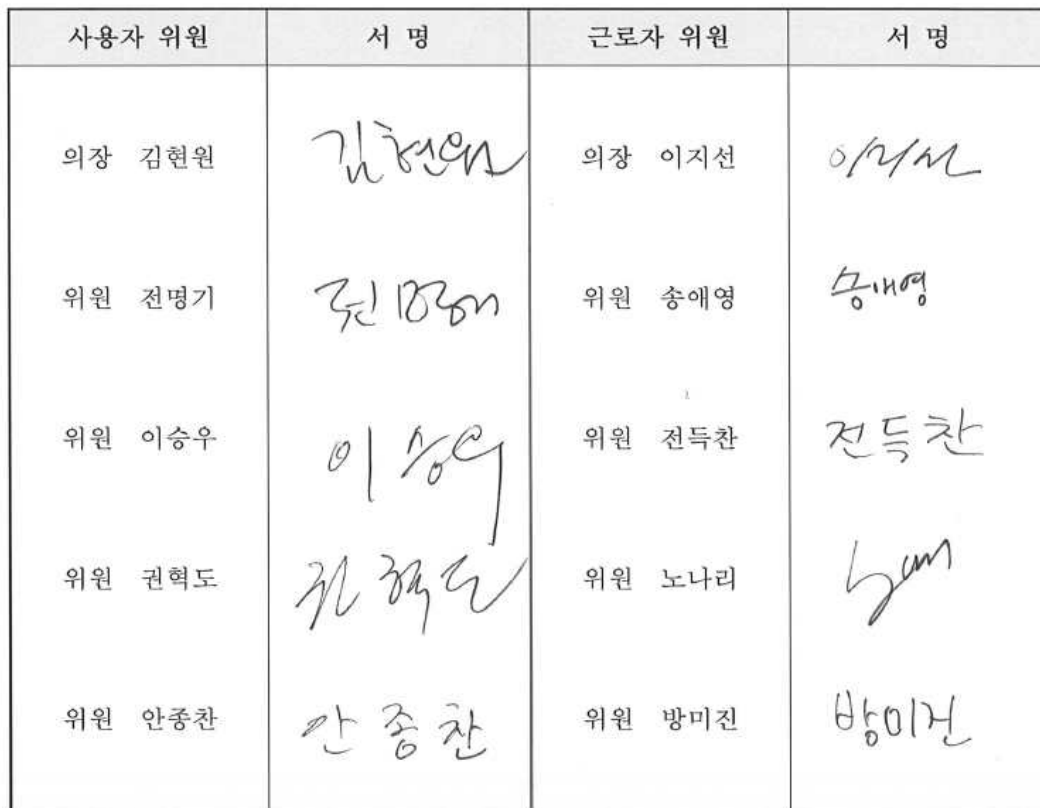 사용자 위원 서 명 근로자 위원 서 명
의장 김현원 김현원 의장 이지선 이지선
위원 전명기 위원 송애영 송애영
위원 이승우 이승우 위원 전득찬 전득찬
위원 권혁도 권혁도 위원 노나리
위원 안종찬 안종찬 위원 방미진 방미진